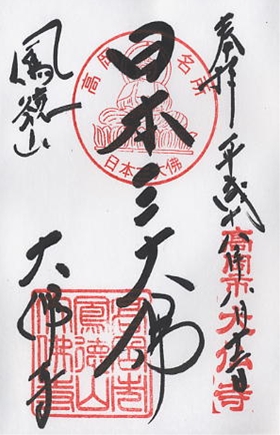 奉拝 平成十八年八月十六日
高岡市大仏寺
日本三大佛
高岡名所
日本三大佛
鳳徳山
大佛寺
高岡市
鳳徳山
大佛寺